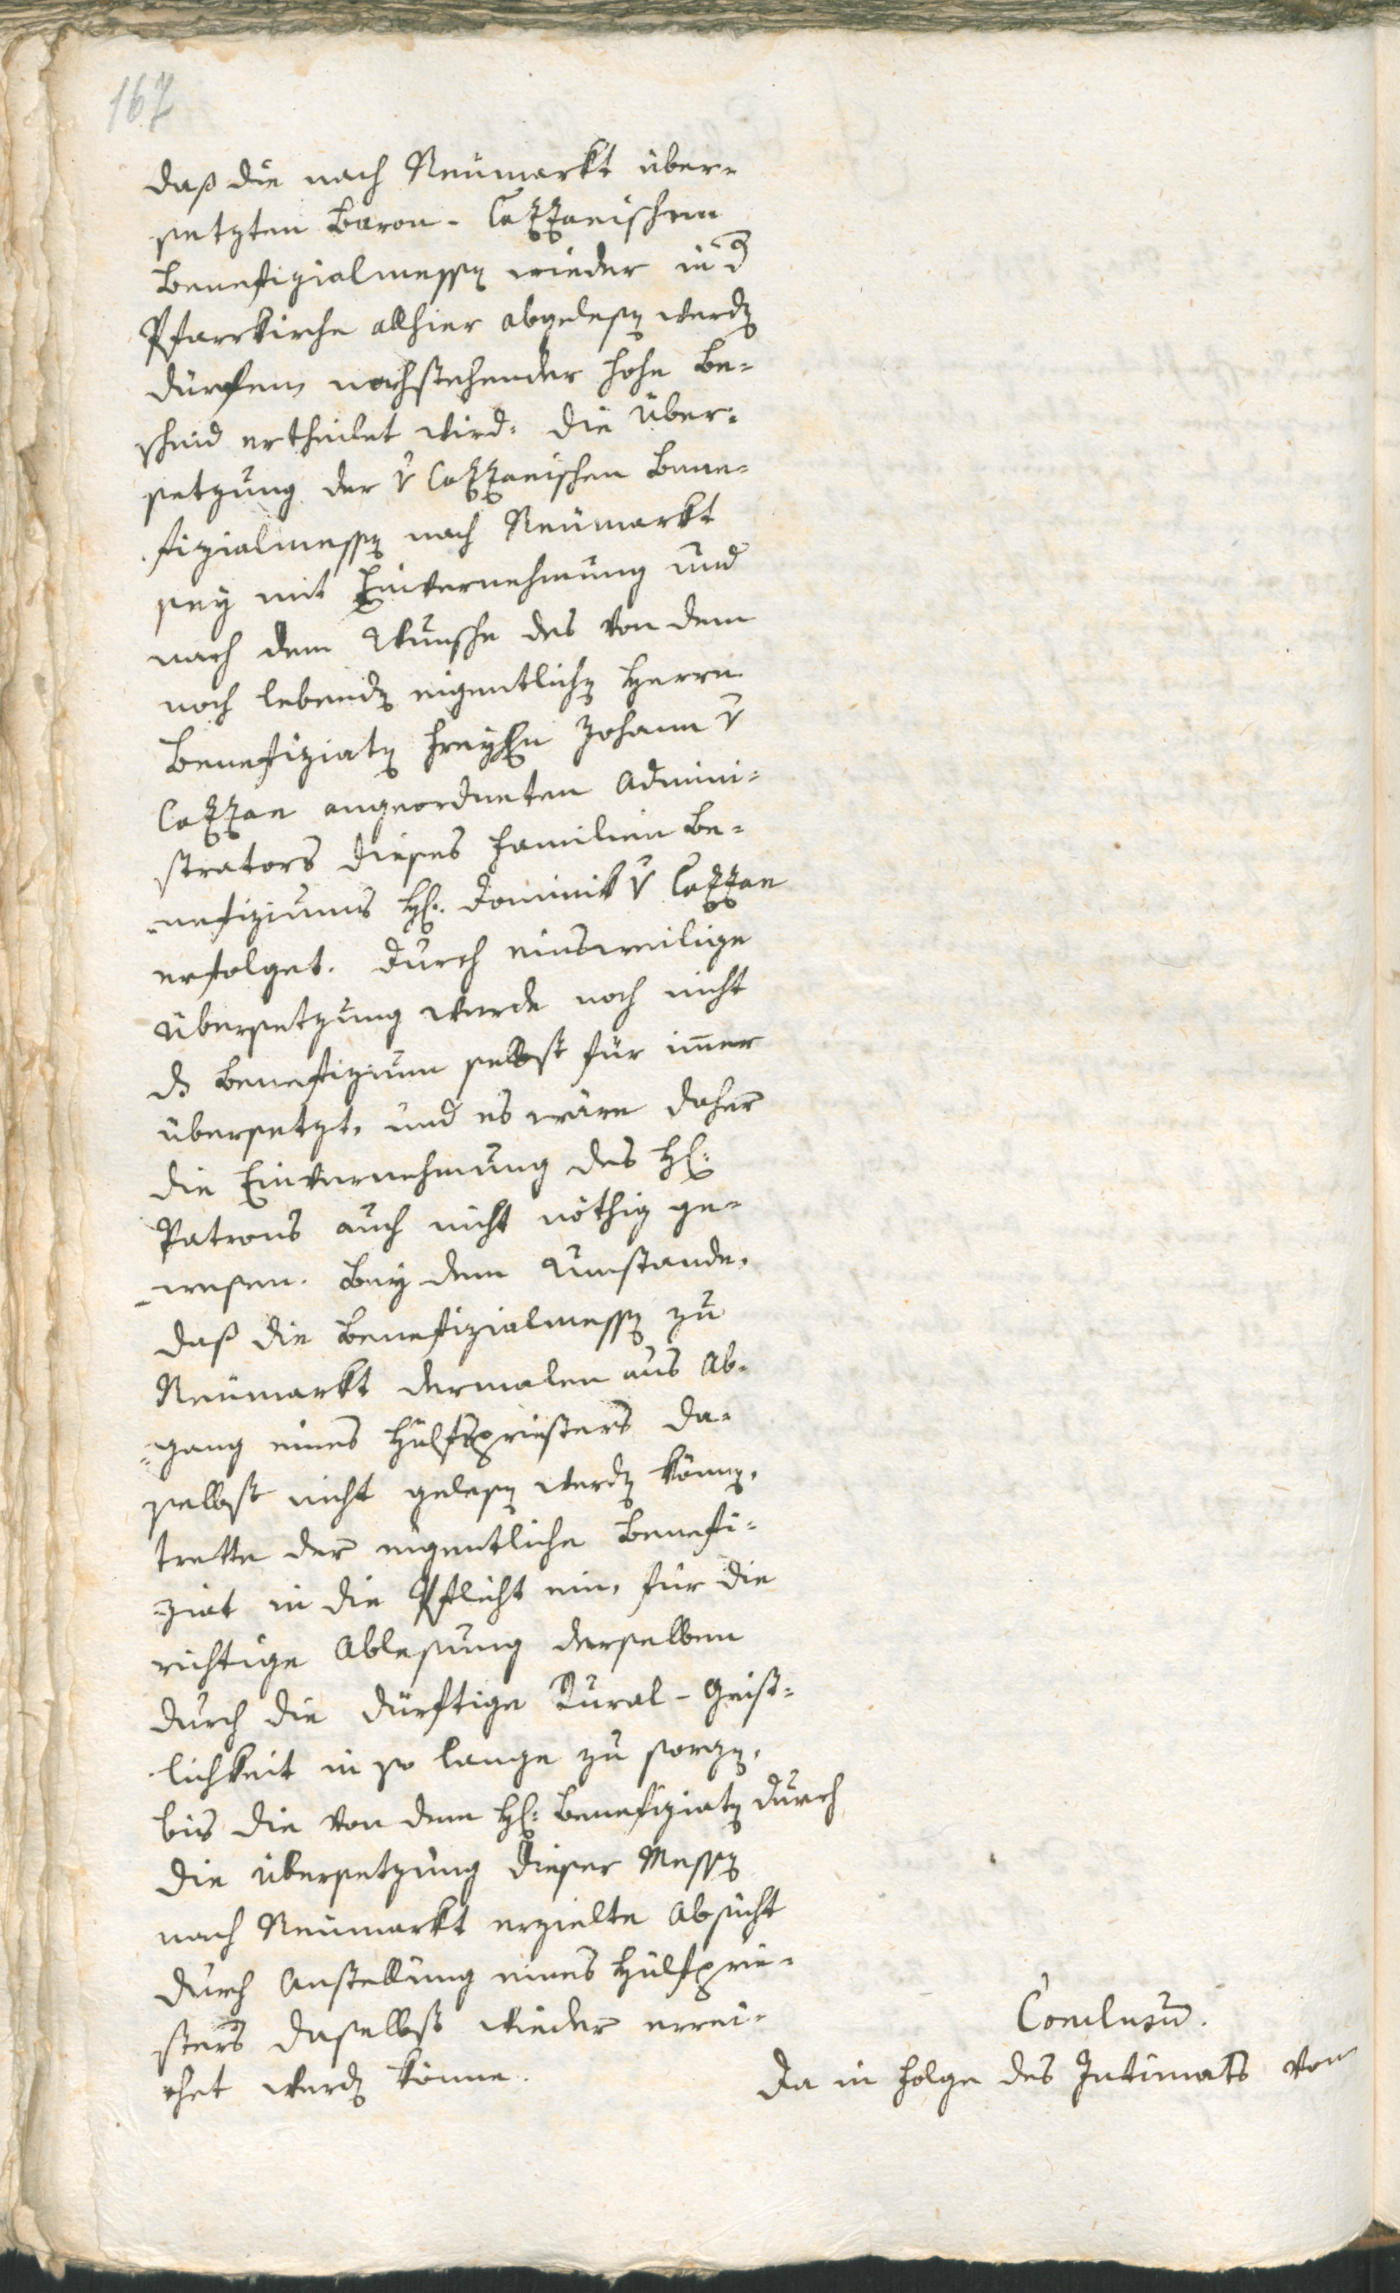 167
daß die nach Neumarkt über-
setzten Baron-Cazzanischen
Benefizialmessen wieder in der
Pfarrkirche allhier abgelesen werden
dürfen, nachstehender hohe Be-
scheid ertheilet wird: die Über-
setzung der v Cazzanischen Bene-
fizialmessen nach Neumarkt
sey mit Einvernehmung und
nach dem Wunsche des von dem
noch lebenden eigentlichen Herrn
Benefiziaten Freyhn Johann v
Cazzan angeordneten Admini-
strators dieses Familien Be-
nefiziums H: Dominik v Cazzan
erfolget. Durch einsweilige
Übersetzung werde noch nicht
das Benefizium selbst für imer
übersetzt, und es wäre daher
die Einvernehmung des H:
Patrons auch nicht nöthig ge-
wesen. Bey dem Umstande,
daß die Benefizialmessen zu
Neumarkt dermalen aus Ab-
gang eines Hülfspriesters da-
selbst nicht gelesen werden können,
trette der eigentliche Benefi-
ziat in die Pflicht ein, für die
richtige Ablesung derselben
durch die dürftige Kural-Geist-
lichkeit in so lange zu sorgen,
bis die von dem H: Benefiziaten durch
die Übersetzung dieser Messen
nach Neumarkt erzielte Absicht
durch Anstellung eines Hülfsprie-
sters daselbst wieder errei-
chet werden könne.
Conclusum.
Da in Folge des Intimats vom